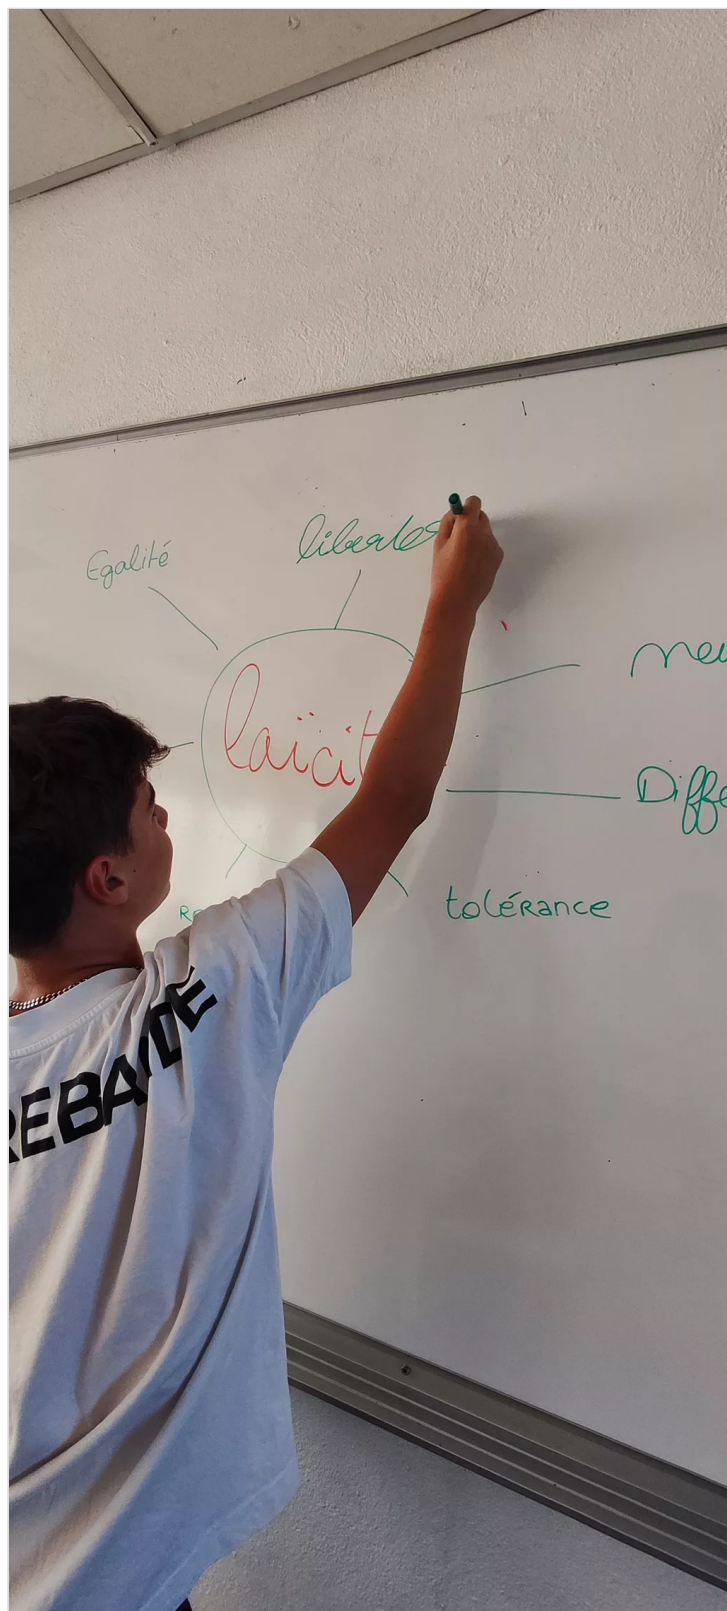 Egalité
libertés
neu
laïcit
Diffé
tolérance
Re
REBAIDE